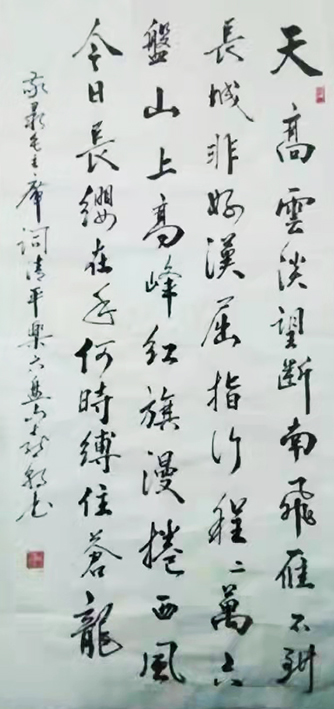 天高雲淡望斷南飛雁不到
長城非好漢屈指行程二萬六
盤山上高峰紅旗漫捲西風
今日長纓在手何時縛住蒼龍
敬录毛主席詞清平樂六盘山